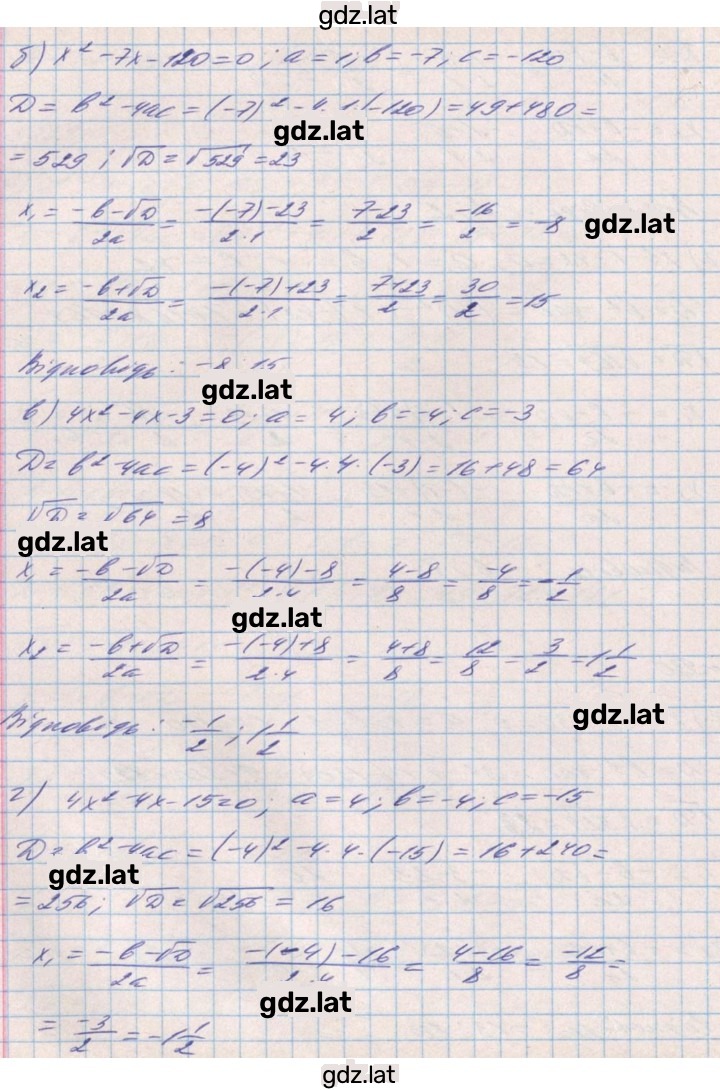 gdz.lat
б) x² - 7x - 120 = 0; a = 1; b = -7; c = -120
D = b² - 4ac = (-7)² - 4 · 1 · (-120) = 49 + 480 =
gdz.lat
= 529; √D = √529 = 23
x₁ = (-b - √D)/2a = (-(-7) - 23)/(2·1) = (7 - 23)/2 = -16/2 = -8
gdz.lat
x₂ = (-b + √D)/2a = (-(-7) + 23)/(2·1) = (7 + 23)/2 = 30/2 = 15
Відповідь: -8; 15
gdz.lat
в) 4x² - 4x - 3 = 0; a = 4; b = -4; c = -3
D = b² - 4ac = (-4)² - 4 · 4 · (-3) = 16 + 48 = 64
√D = √64 = 8
gdz.lat
x₁ = (-b - √D)/2a = (-(-4) - 8)/(2·4) = (4 - 8)/8 = -4/8 = -1/2
gdz.lat
x₂ = (-b + √D)/2a = (-(-4) + 8)/(2·4) = (4 + 8)/8 = 12/8 = 3/2 = 1 1/2
gdz.lat
Відповідь: -1/2; 1 1/2
г) 4x² - 4x - 15 = 0; a = 4; b = -4; c = -15
D = b² - 4ac = (-4)² - 4 · 4 · (-15) = 16 + 240 =
gdz.lat
= 256; √D = √256 = 16
x₁ = (-b - √D)/2a = (-(-4) - 16)/(2·4) = (4 - 16)/8 = -12/8 =
gdz.lat
= -3/2 = -1 1/2
gdz.lat